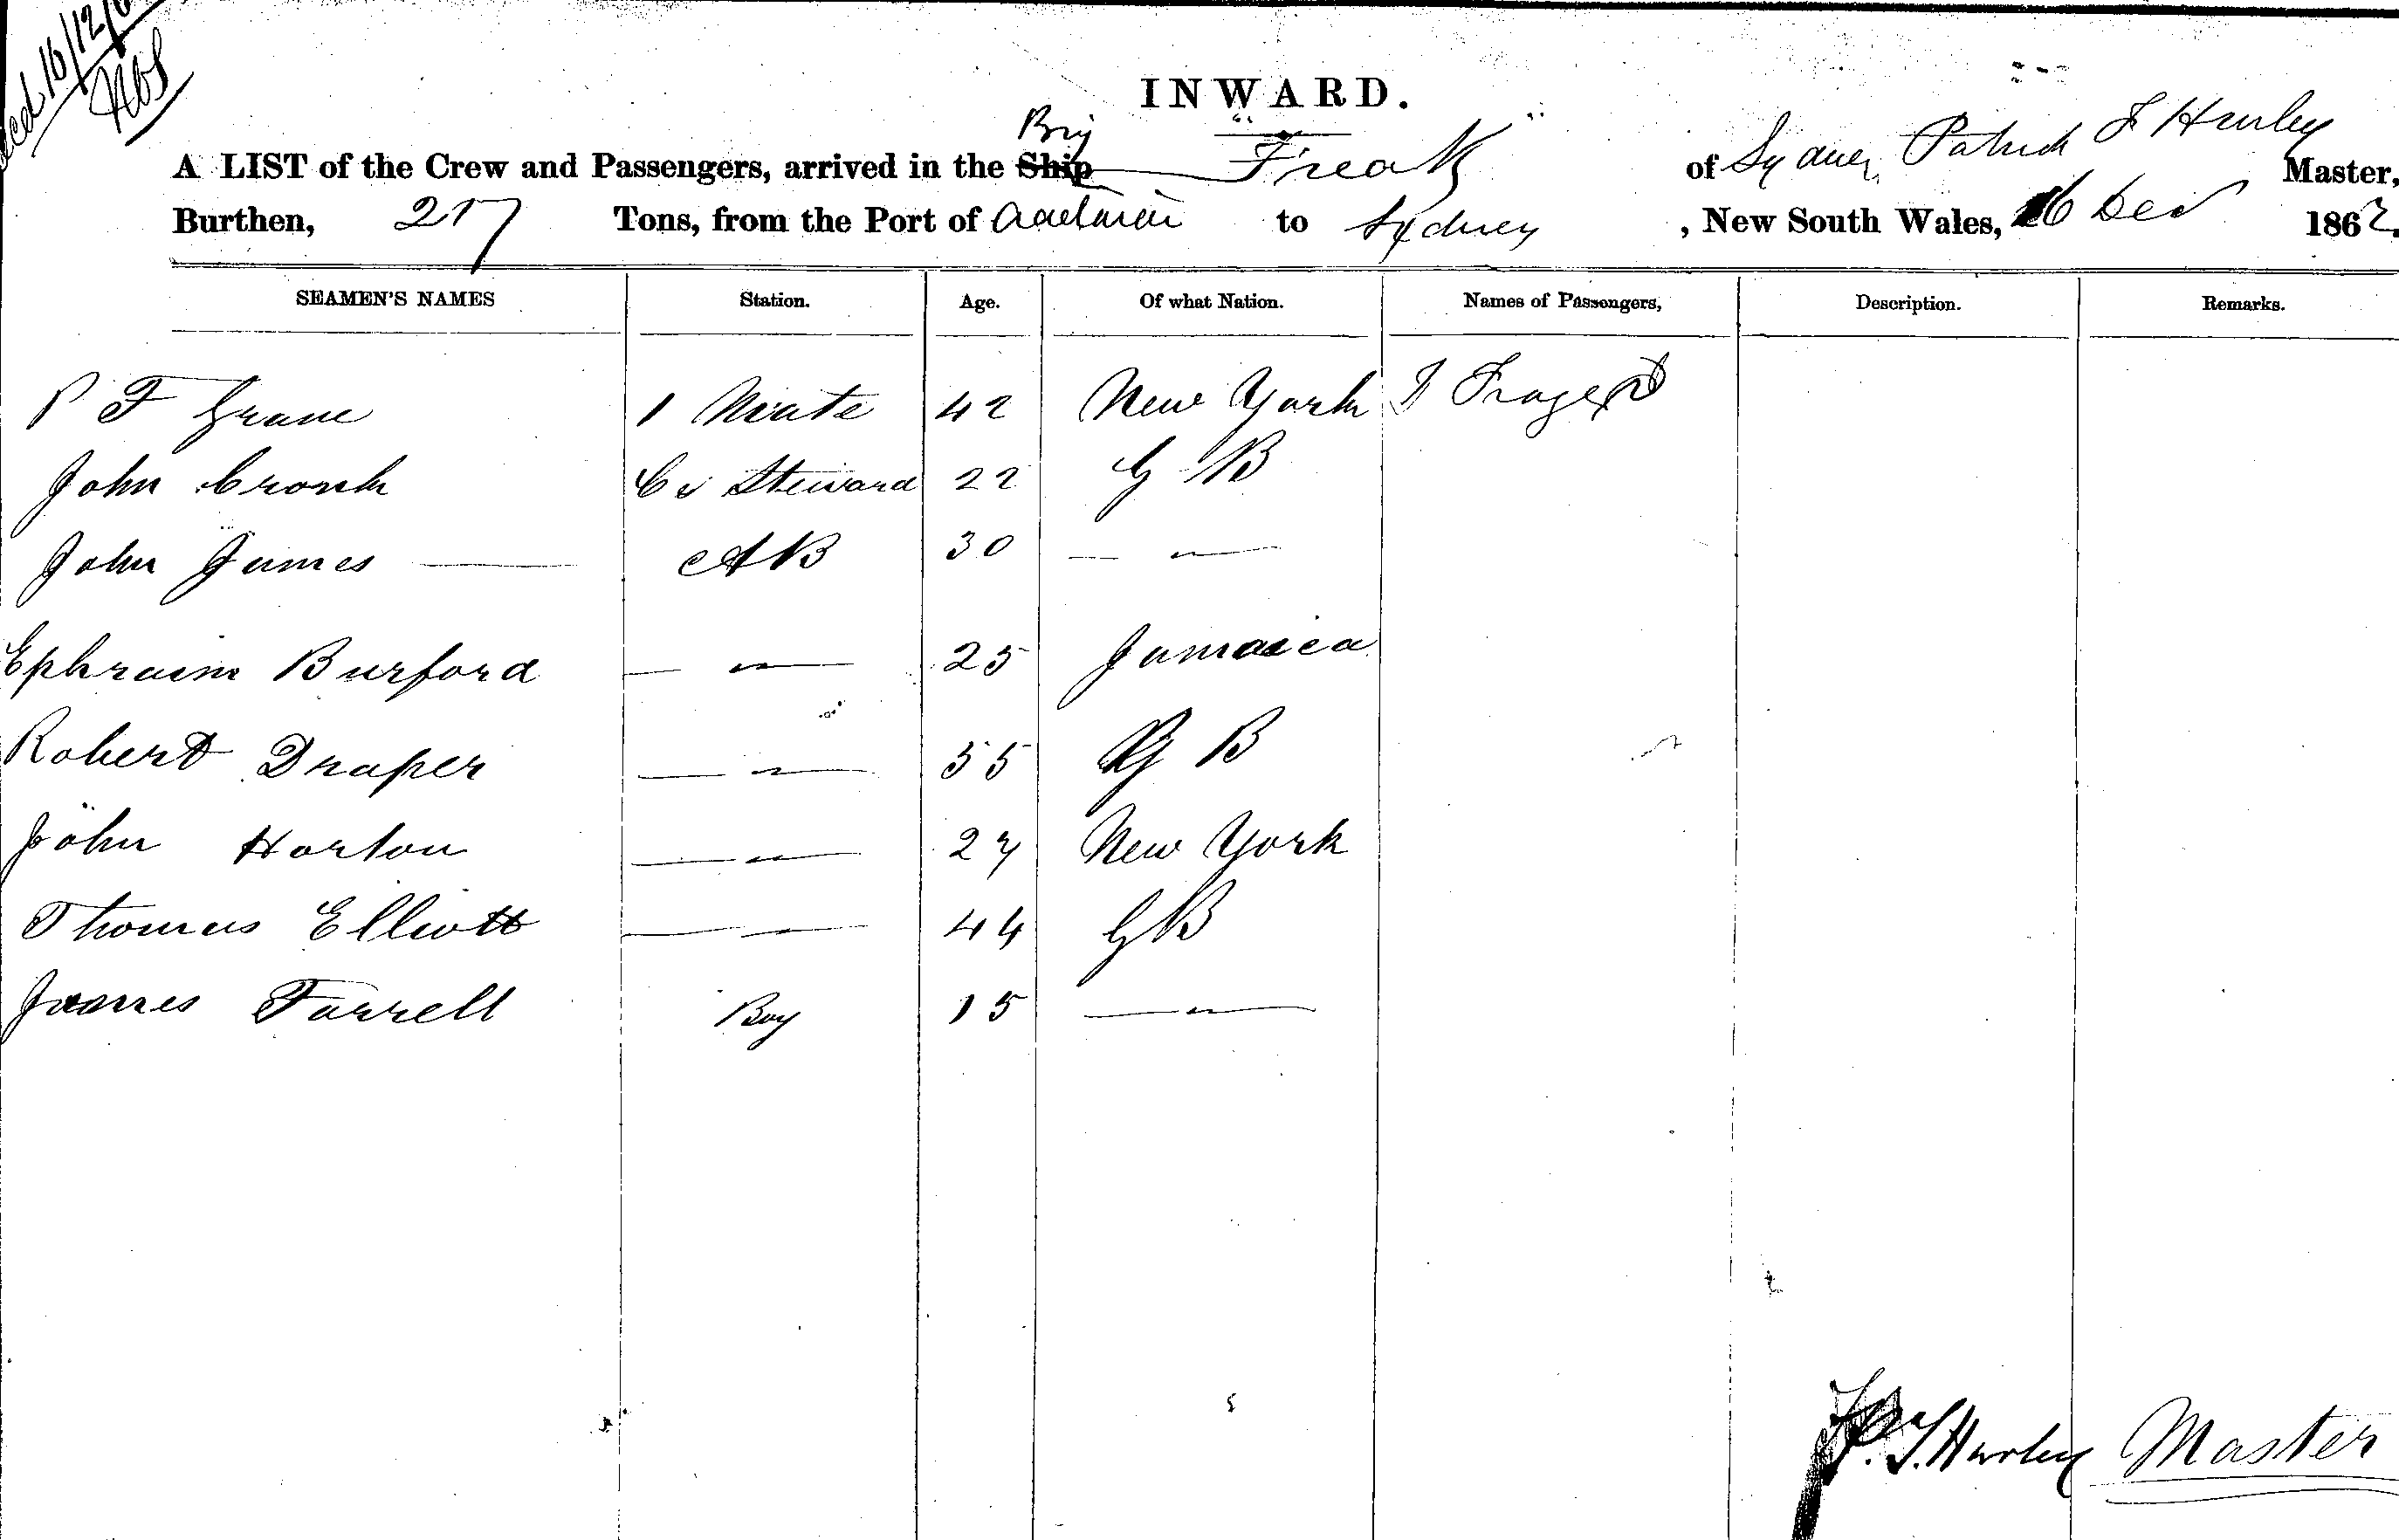 16/12/6
INWARD.
A LIST of the Crew and Passengers, arrived in the Ship Brig "Freak" of Sydney, Patrick F Hurley Master,
Burthen, 217 Tons, from the Port of to Sydney, New South Wales, 16 Dec 1862.
SEAMEN'S NAMES Station. Age. Of what Nation. Names of Passengers, Description. Remarks.
P F 1 Mate 42 New York
John Cronk C & Steward 22 G B
John James — A B 30 — " —
Ephraim Burford — " — 25 Jamaica
Robert Draper — " — 55 G B
John Horton — " — 27 New York
Thomas Elliott — " — 44 G B
James Farrell Boy 15 — " —
Hurley Master